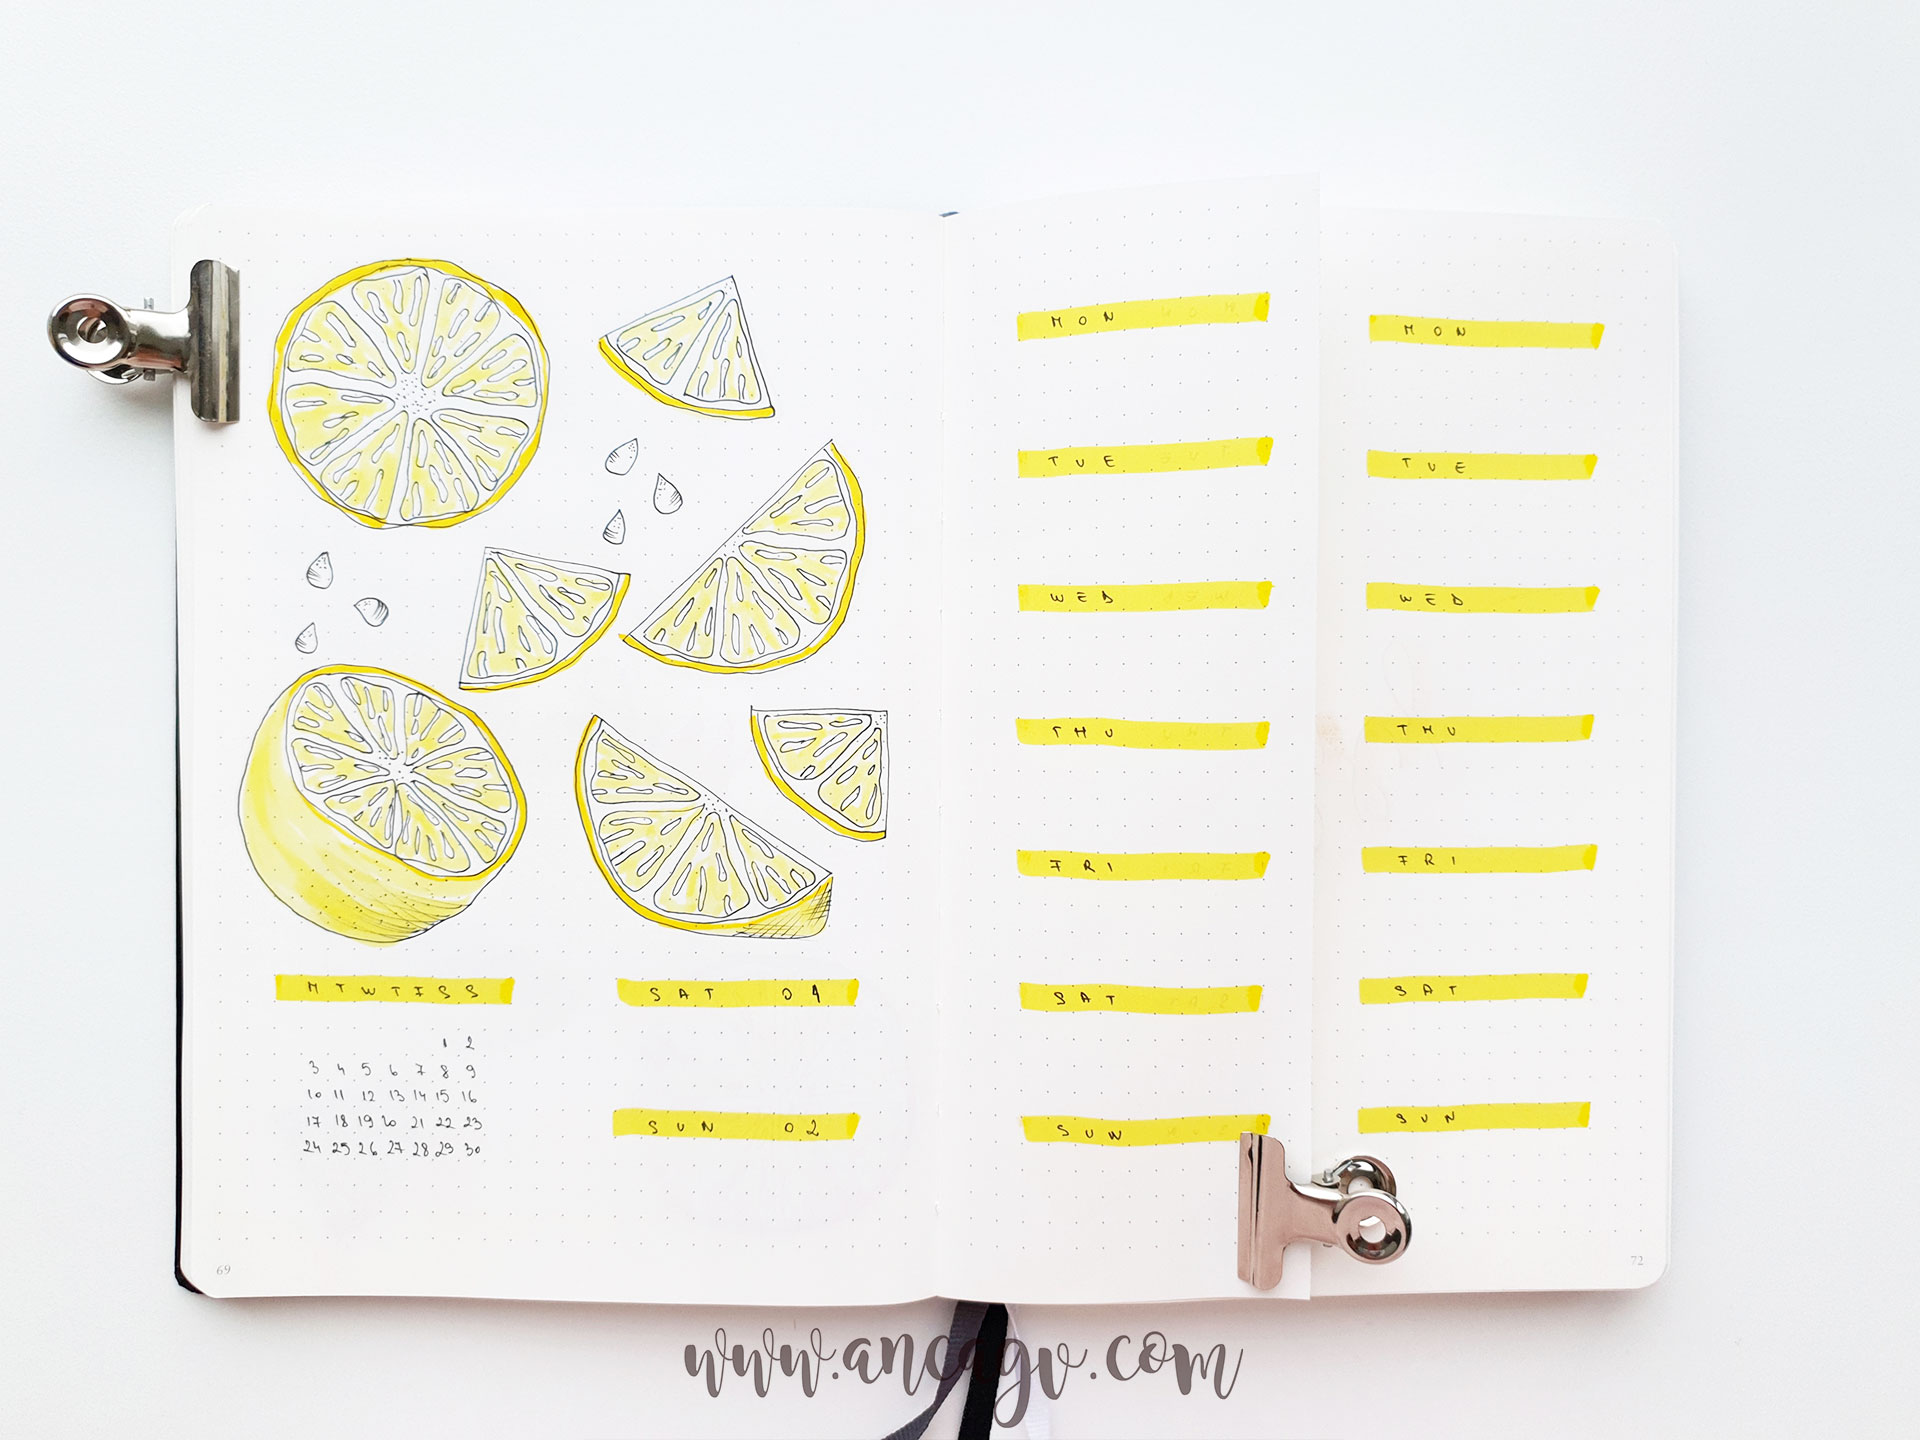 M T W T F S S
1 2
3 4 5 6 7 8 9
10 11 12 13 14 15 16
17 18 19 20 21 22 23
24 25 26 27 28 29 30
SAT 01
SUN 02
69
MON
TUE
WED
THU
FRI
SAT
SUN
MON
TUE
WED
THU
FRI
SAT
SUN
72
www.ancagv.com